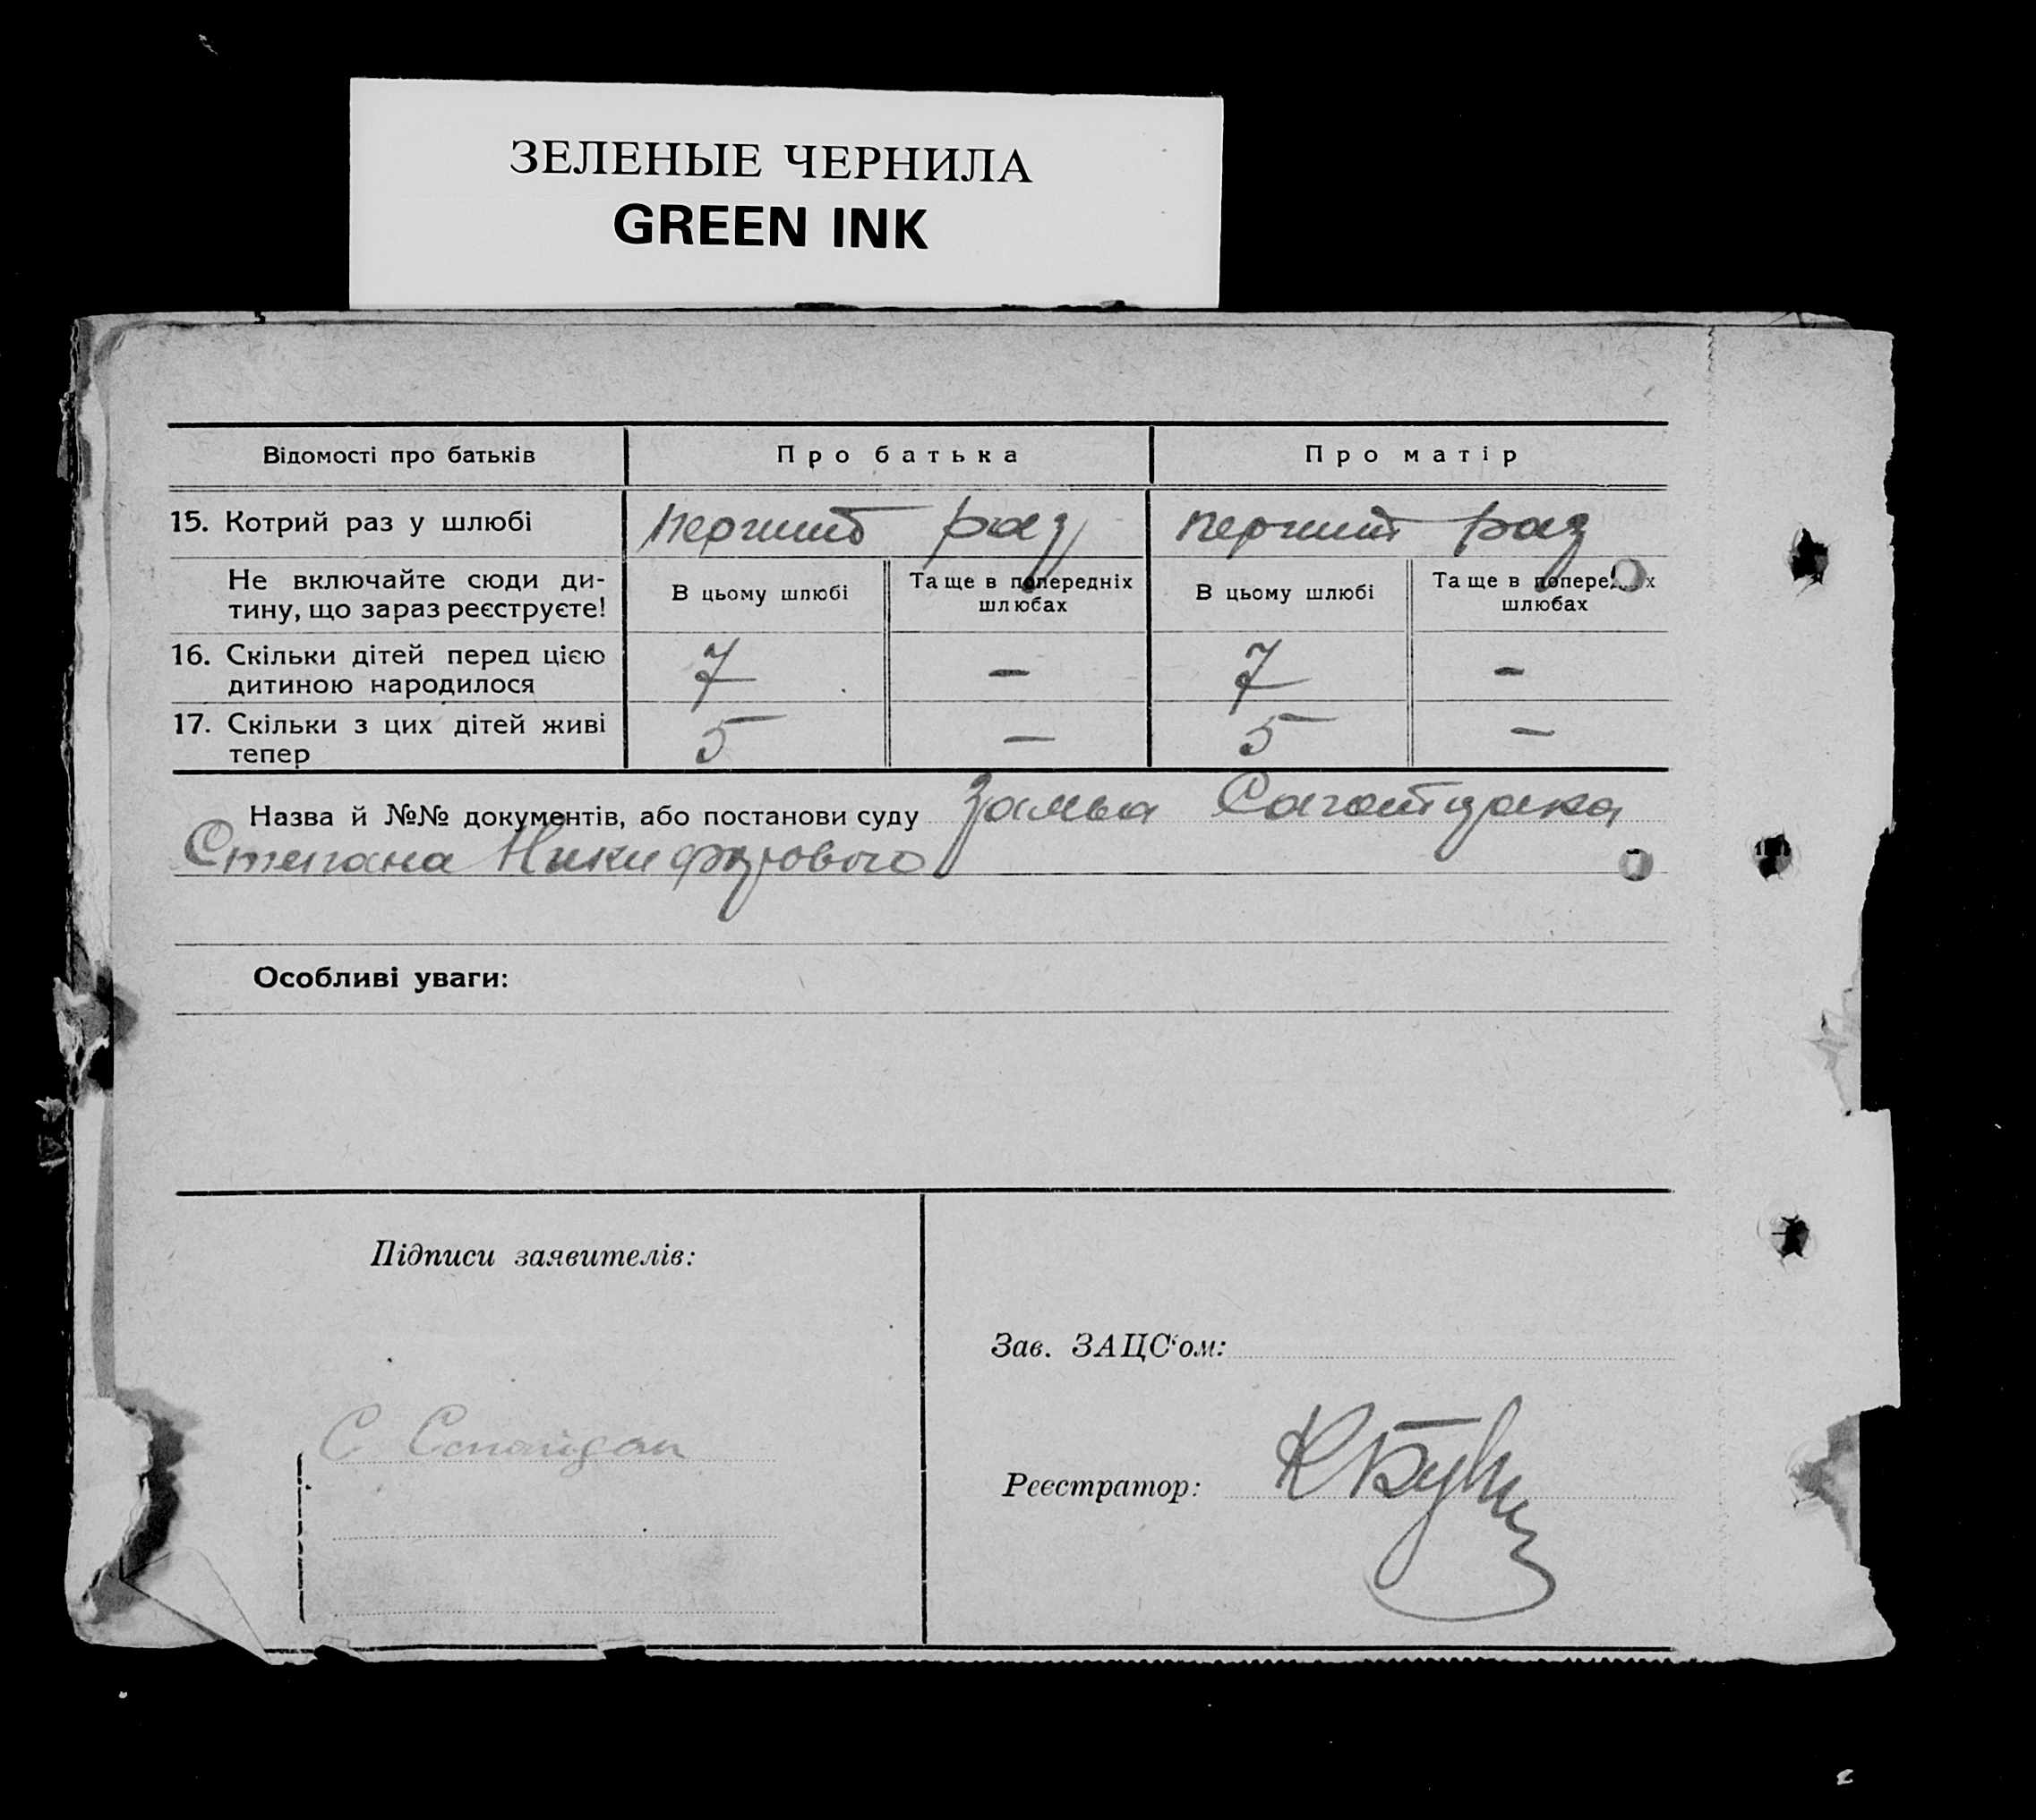 ЗЕЛЕНЫЕ ЧЕРНИЛА
GREEN INK
Відомості про батьків
Про батька
Про матір
15. Котрий раз у шлюбі
перший раз
перший раз
Не включайте сюди ди-
тину, що зараз реєструєте!
В цьому шлюбі
Та ще в попередніх
шлюбах
В цьому шлюбі
Та ще в попередніх
шлюбах
16. Скільки дітей перед цією
дитиною народилося
7
–
7
–
17. Скільки з цих дітей живі
тепер
5
–
5
–
Назва й №№ документів, або постанови суду заява
Степана Никифорового
Особливі уваги:
Підписи заявителів:
С
Зав. ЗАЦС‘ом:
Реєстратор: